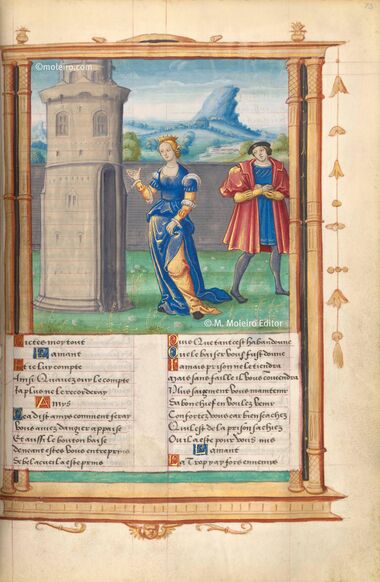 ©moleiro.com
© M. Moleiro Editor
Dictes moy tout
Lamant
Et le luy compte
Ainsi Quauez ouy le compte
Ja plus ne le recorderay
Amys
dist amys comment feray
Vous auez dangier appaise
Et aussi le bouton baise
De neant estes vous entreprins
Se bel acueil a este prins
Puis Que tant cest habandonne
Que le baiser vous fust donne
Jamais prison ne le tiendra
Mais sans faille il vous conuiendra
Plus sagement vous maintenir
Sa bon chief en voulez venir
Confortez vous car bien sachez
Quil est de la prison sachez
Ou il a este pour vous mis
Lamant
Ha Trop y a fors ennemis